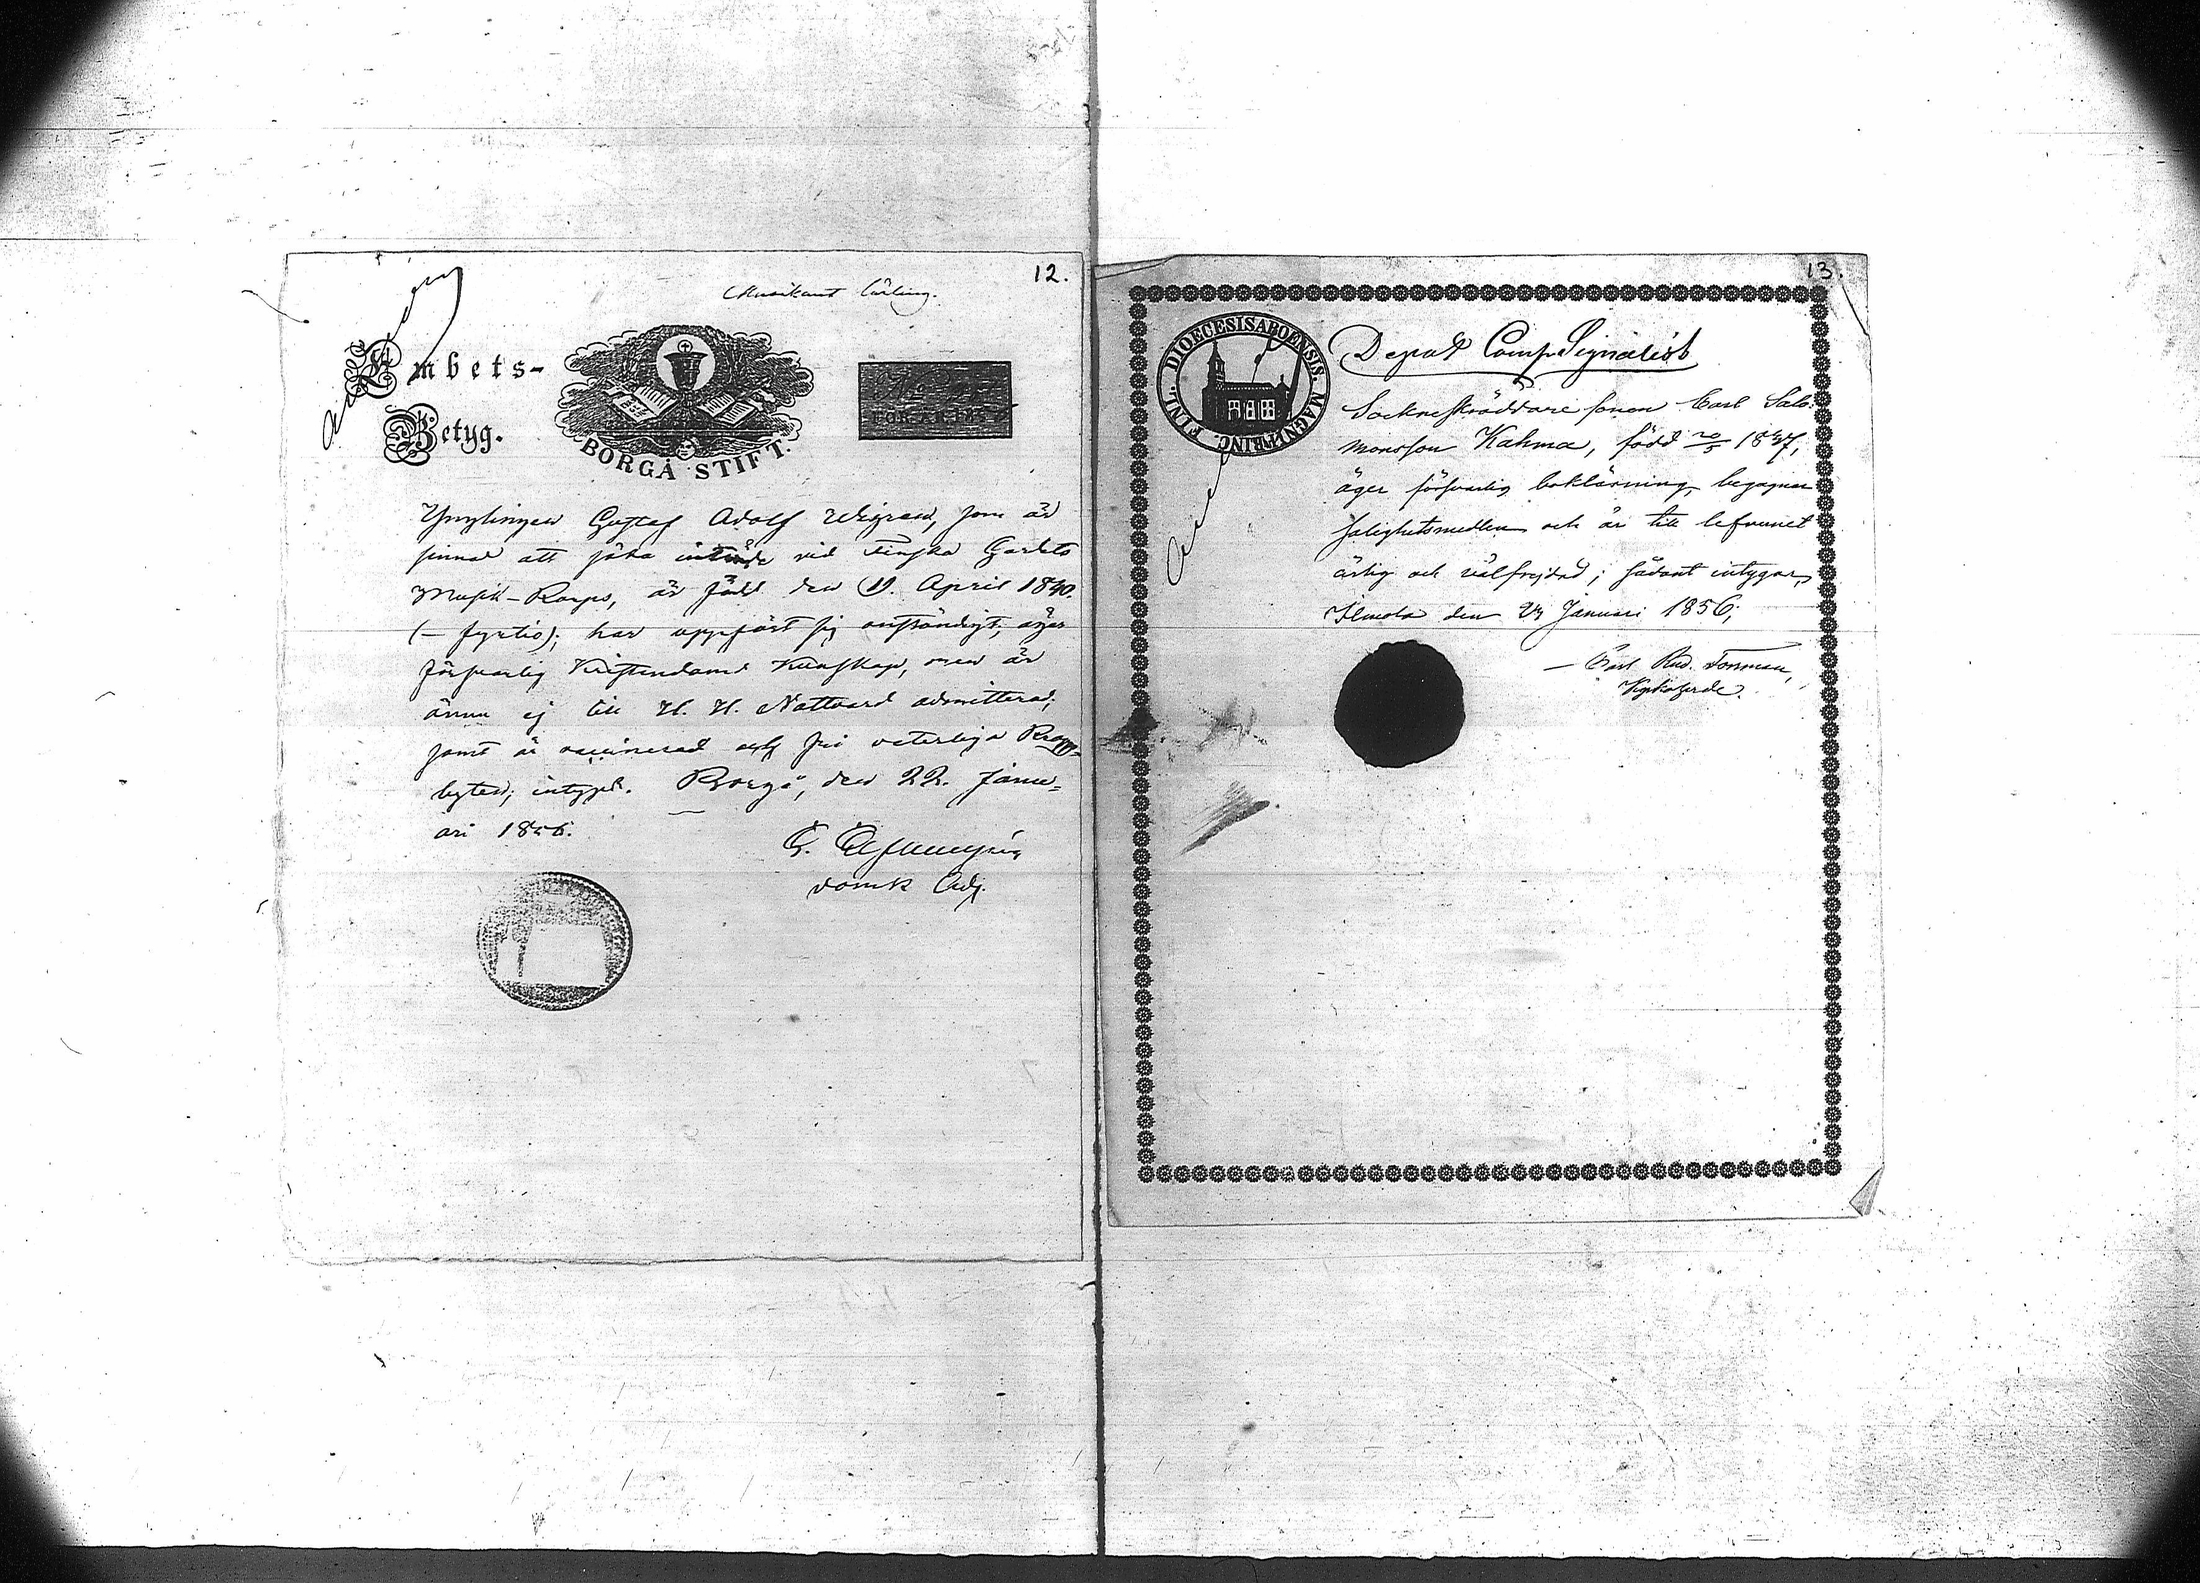 12.
Musikant Lärling.
Embets-
Betyg.
BORGÅ STIFT.
Ynglingen Gustaf Adolf som är
sinnad att söka inträde vid Finska Gardets
Musik-Korps, är född den April 1840.
(- fyrtio); har uppfört sig anständigt, äger
försvarlig Kristendoms Kunskap, men är
ännu ej till H. H. Nattvard admitterad;
samt är vaccinerad och fri veterliga Kropps-
lyten; intygar. Borgå, den 22. Janu-
ari 1856.
domk Adj.
13.
FINL. DIOECESIS ABOENSIS. MAGNI PRINC.
Depot Comp Signalist
Sockneskräddare sonen Carl Salo-
monsson Kahma, född 20/5 1837,
äger försvarlig boklärning, begagnar
salighetsmedlen och är till lefvernet
ärlig och välfrejdad; sådant intygar,
Ilmola den 24 Januari 1856;
Carl Rud. Forsman,
Kyrkoherde.